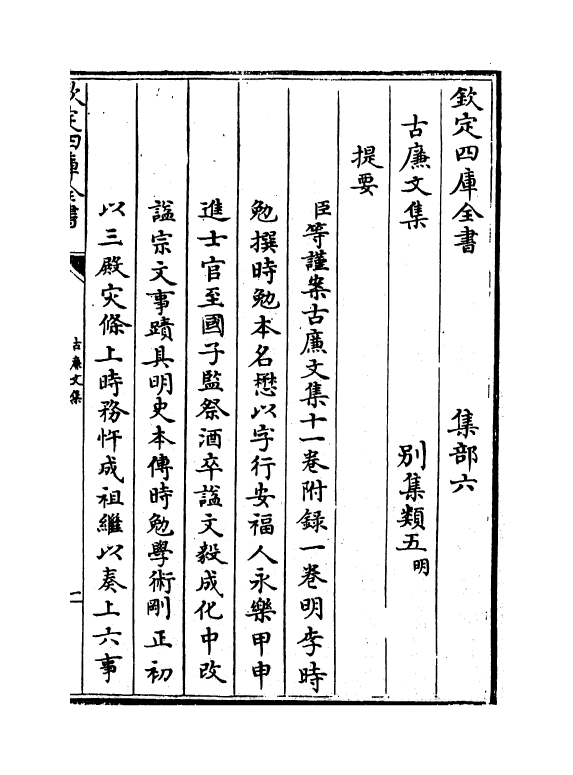 欽定四庫全書　集部六
古廉文集　別集類五明
提要
臣等謹案古廉文集十一卷附録一卷明李時
勉撰時勉本名懋以字行安福人永樂甲申
進士官至國子監祭酒卒諡文毅成化中改
諡宗文事蹟具明史本傳時勉學術剛正初
以三殿灾條上時務忤成祖繼以奏上六事
欽定四庫全書
古廉文集
一